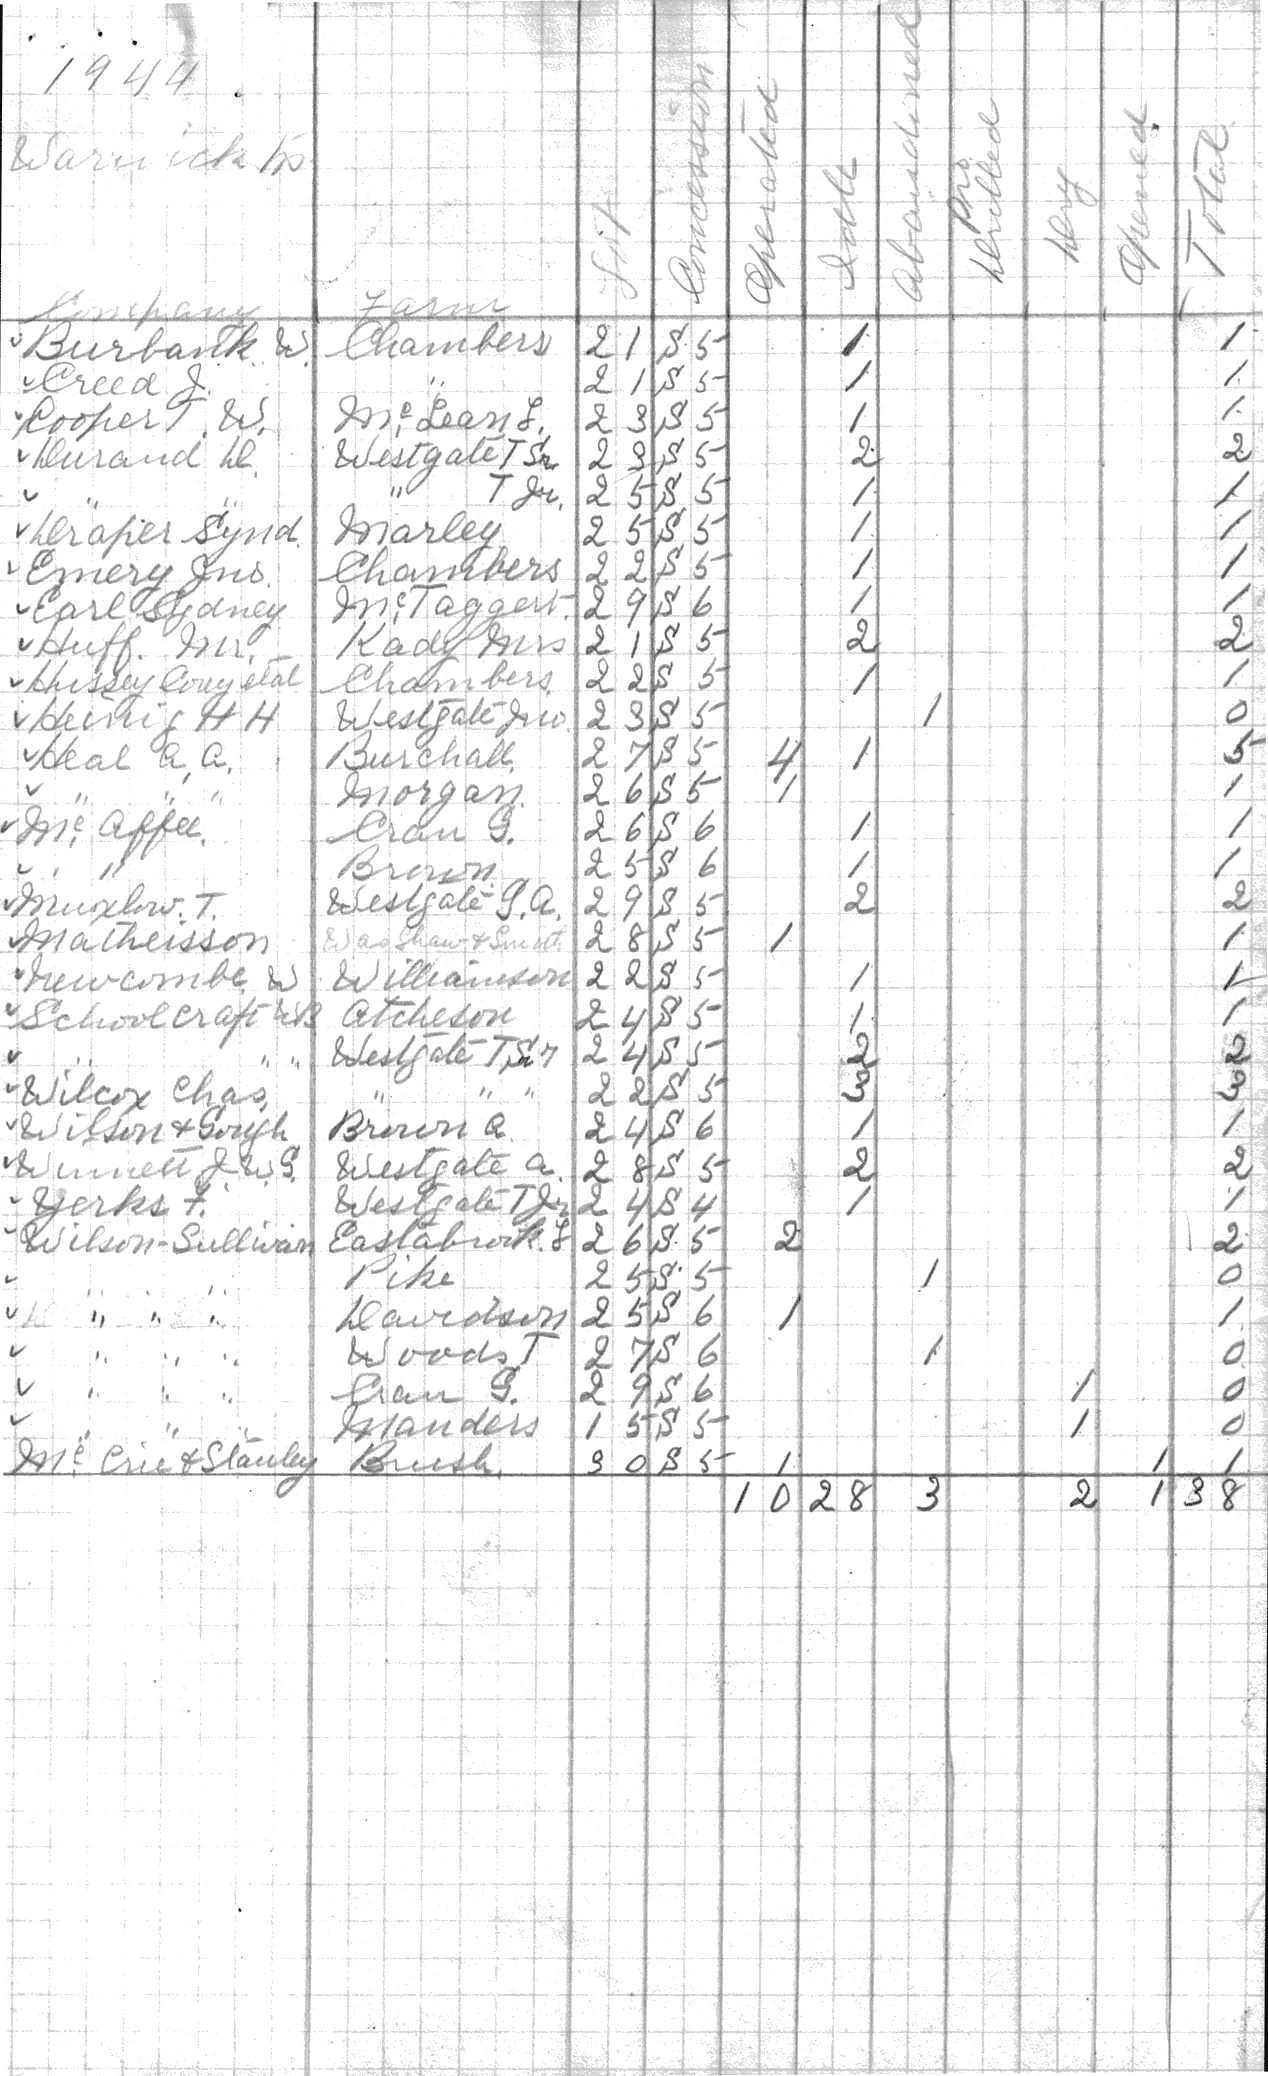 1944.
Warwick Tp
Company Farm Lot Concession Operated Idle Abandoned Drilled Dry Opened Total
Burbank W. Chambers 21 S 5 1 1
Creed J. " 21 S 5 1 1
Cooper T. W. Mc Lean L. 23 S 5 1 1
Durand D. Westgate T Sr. 23 S 5 2 2
" " " T Jr. 25 S 5 1 1
Draper Synd. Marley 25 S 5 1 1
Emery Jno. Chambers 22 S 5 1 1
Earl Sydney Mc Taggert. 29 S 6 1 1
Huff. Mr. Kady Mrs 21 S 5 2 2
Hussey Cony etal Chambers 22 S 5 1 1
Heinig H H Westgate Jno. 23 S 5 1 0
Heal A. A. Burchall 27 S 5 4 1 5
" " " Morgan 26 S 5 1 1
Mc Affee. Cran G. 26 S 6 1 1
" " Brown 25 S 6 1 1
Muxlow. T. Westgate G. A. 29 S 5 2 2
Matheisson Shaw & Smith 28 S 5 1 1
Newcombe W Williamson 22 S 5 1 1
Schoolcraft WB Atcheson 24 S 5 1 1
" " " Westgate T, Sr 24 S 5 2 2
Wilcox Chas, " " " 22 S 5 3 3
Wilson & Gough Brown A 24 S 6 1 1
Winnett J. W. G. Westgate A. 28 S 5 2 2
Yerks F. Westgate T Jr 24 S 4 1 1
Wilson-Sullivan Eastabrook. L 26 S 5 2 2
Pike 25 S 5 1 0
" " " Davidson 25 S 6 1 1
" " " Woods T 27 S 6 1 0
" " " Cran G. 29 S 6 1 0
" " Manders 15 S 5 1 0
Mc Crie & Stanley Brush. 30 S 5 1 1 1
10 28 3 2 1 38